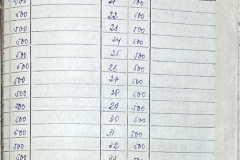 500 21 500
500 22 500
500 23 500
500 24 500
500 25 500
500 26 500
500 27 500
500 28 500
500 29 500
500 30 500
500 31 500
500 32 500
500 33